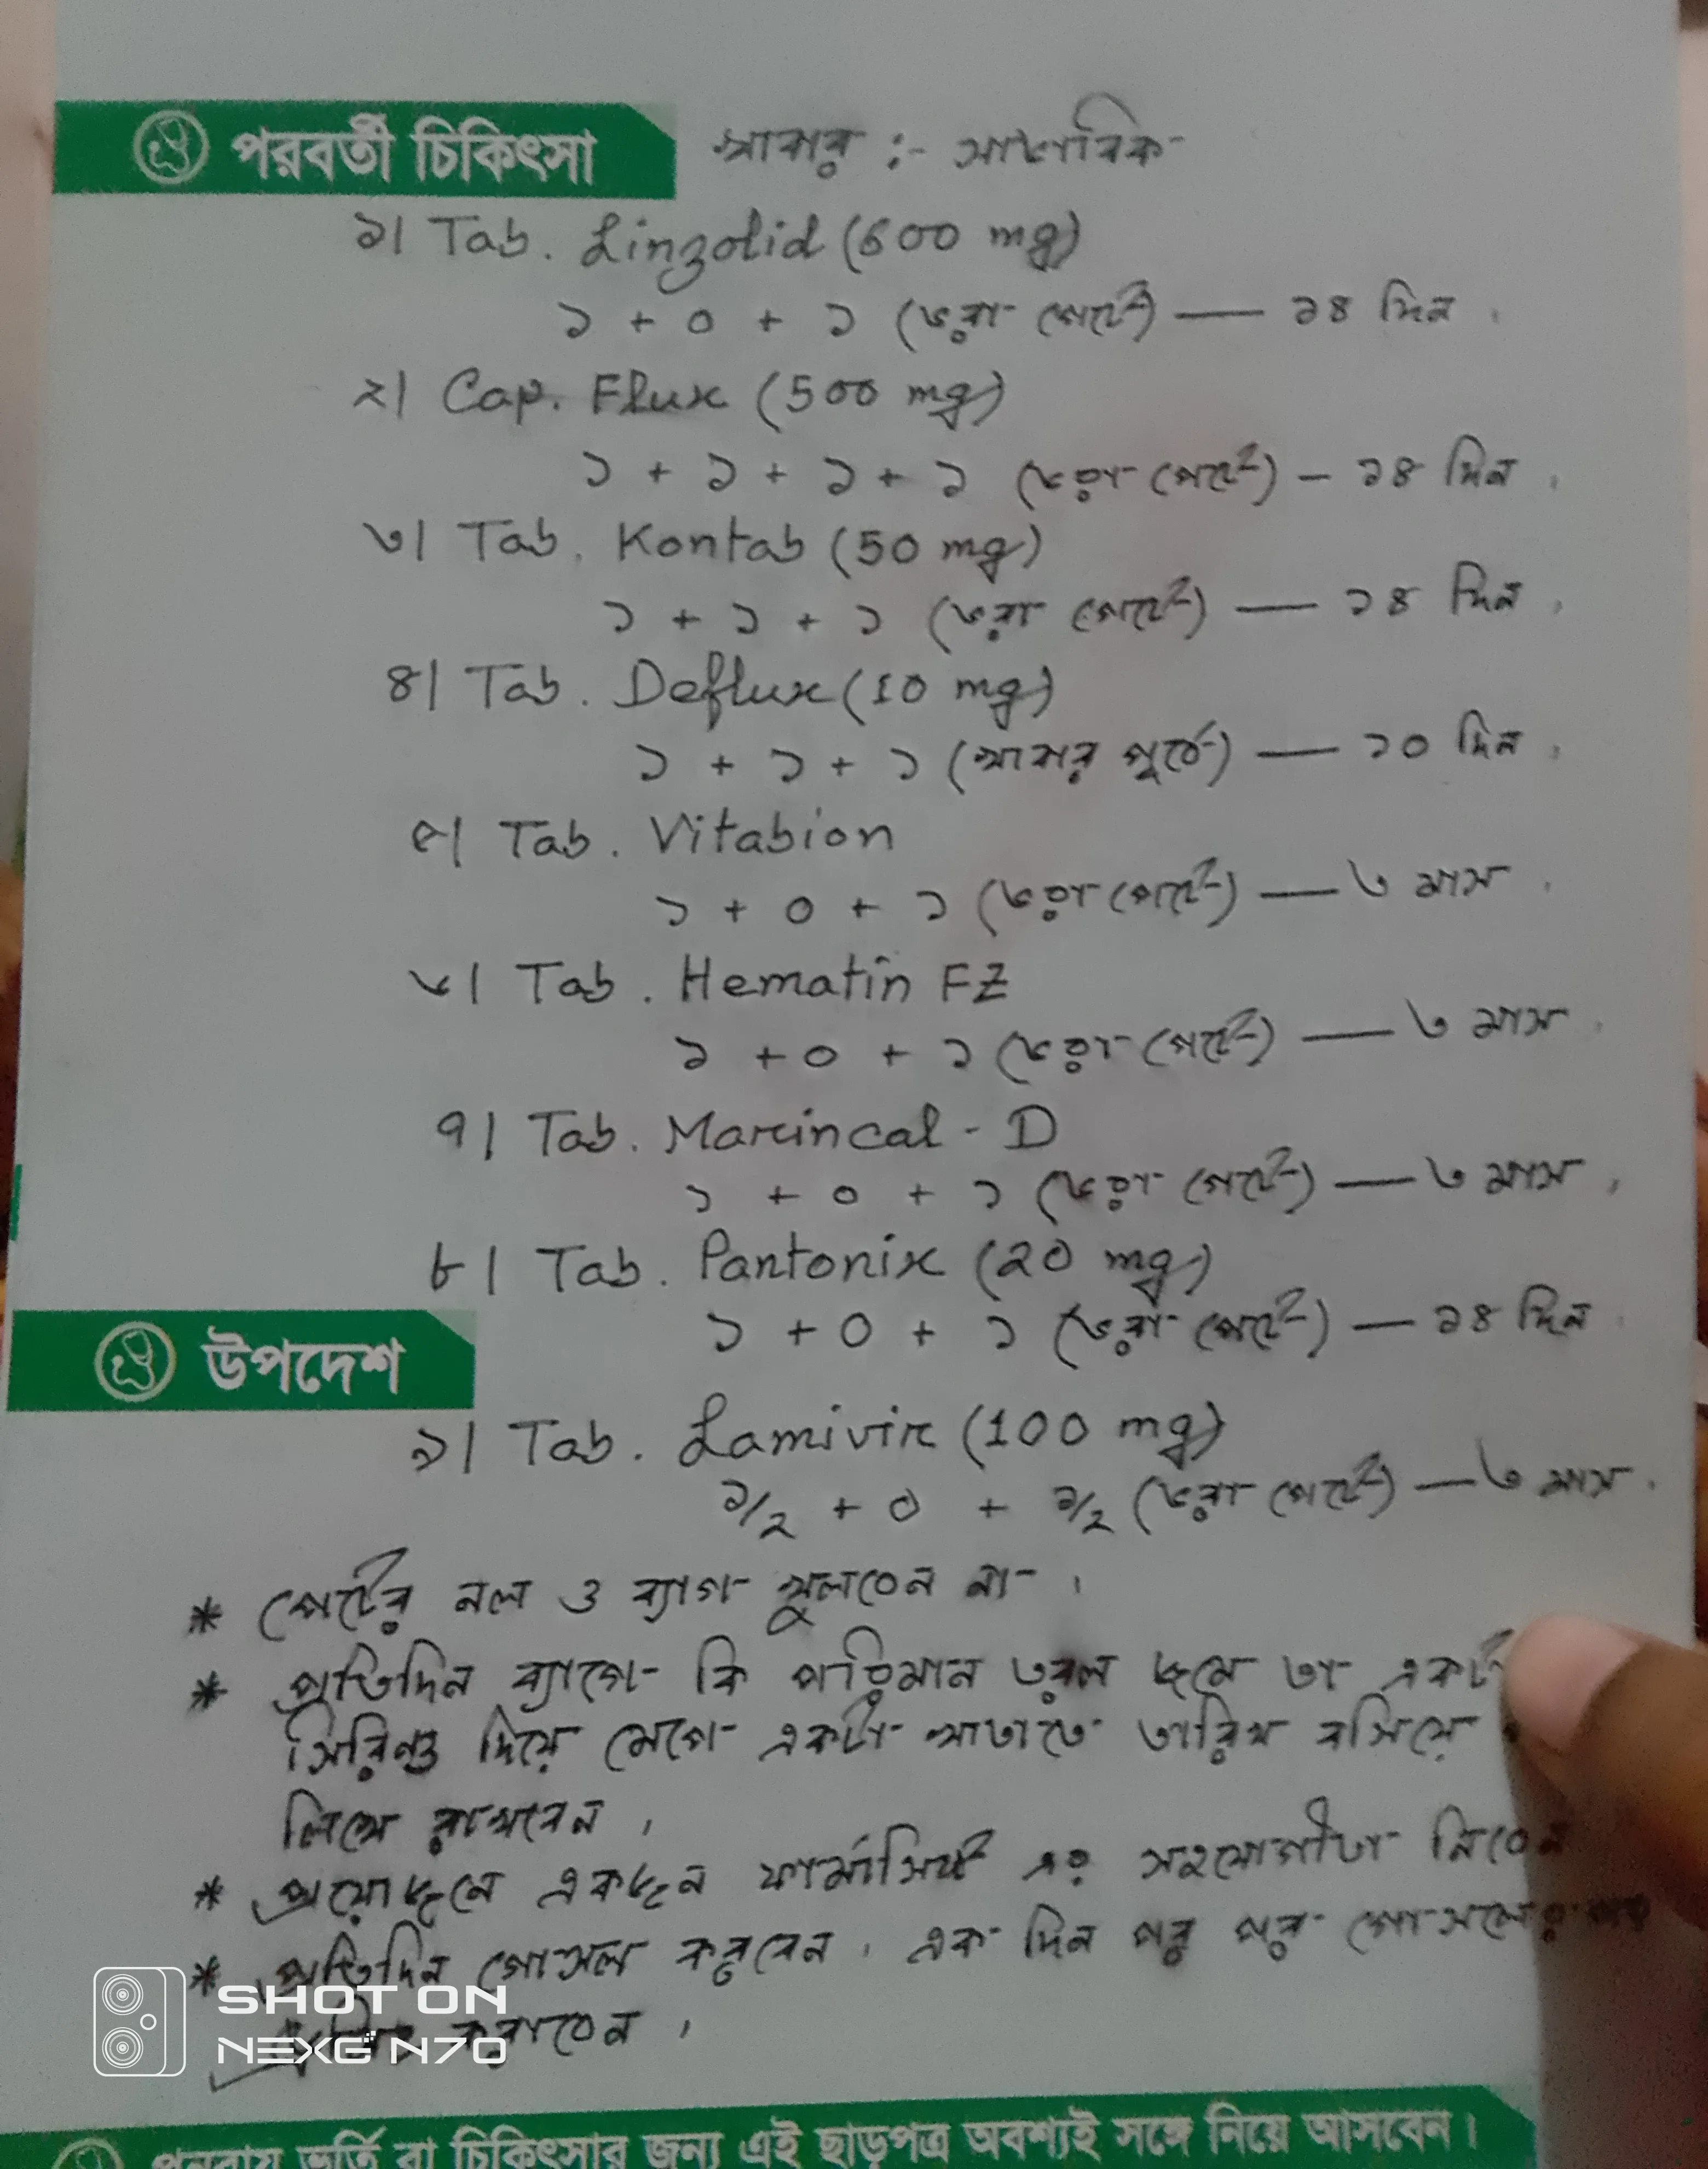 পরবর্তী চিকিৎসা
খাবার :- স্বাভাবিক
১। Tab. Linzolid (600 mg)
১ + ০ + ১ (ভরা পেটে) — ১৪ দিন।
২। Cap. Flux (500 mg)
১ + ১ + ১ + ১ (ভরা পেটে) – ১৪ দিন।
৩। Tab. Kontab (50 mg)
১ + ১ + ১ (ভরা পেটে) — ১৪ দিন।
৪। Tab. Deflux (10 mg)
১ + ১ + ১ (খাবার পূর্বে) — ১০ দিন।
৫। Tab. Vitabion
১ + ০ + ১ (ভরা পেটে) — ৩ মাস।
৬। Tab. Hematin FZ
১ + ০ + ১ (ভরা পেটে) — ৩ মাস।
৭। Tab. Marincal - D
১ + ০ + ১ (ভরা পেটে) — ৩ মাস।
৮। Tab. Pantonix (20 mg)
১ + ০ + ১ (ভরা পেটে) — ১৪ দিন
উপদেশ
৯। Tab. Lamivir (100 mg)
১/২ + ০ + ১/২ (ভরা পেটে) — ৩ মাস।
* পেটের নল ও ব্যাগ খুলবেন না।
* প্রতিদিন ব্যাগে কি পরিমান তরল জমে তা
সিরিঞ্জ দিয়ে মেপে একটা খাতাতে তারিখ বসিয়ে
লিখে রাখবেন।
* প্রয়োজনে একজন ফার্মাসিস্ট এর সহযোগীতা নিবেন
* প্রতিদিন গোসল করবেন। এক দিন পর পর গোসলের পর
করাবেন।
SHOT ON
NEXG N70
পুনরায় ভর্তি বা চিকিৎসার জন্য এই ছাড়পত্র অবশ্যই সঙ্গে নিয়ে আসবেন।